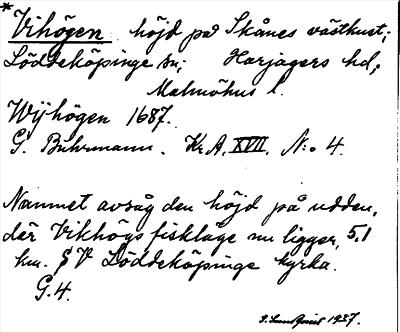 * Vihögen höjd på Skånes västkust;
Löddeköpinge sn; Harjagers hd,
Malmöhus l.
Wijhögen 1687.
G. Buhrmann. Kr.A. XVII. N:o 4.
Namnet avsåg den höjd på udden,
där Vikhögs fiskläge nu ligger, 5,1
km. SV Löddeköpinge kyrka.
G.4.
1927.